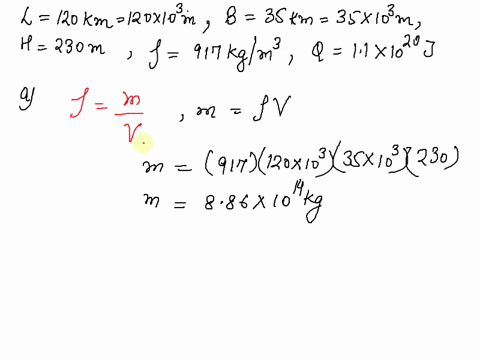 L = 120 km = 120×10³ m, B = 35 km = 35×10³ m,
H = 230 m, ρ = 917 kg/m³, Q = 1.1×10²⁰ J
a) ρ = m/V, m = ρV
m = (917)(120×10³)(35×10³)(230)
m = 8.86×10¹⁴ kg